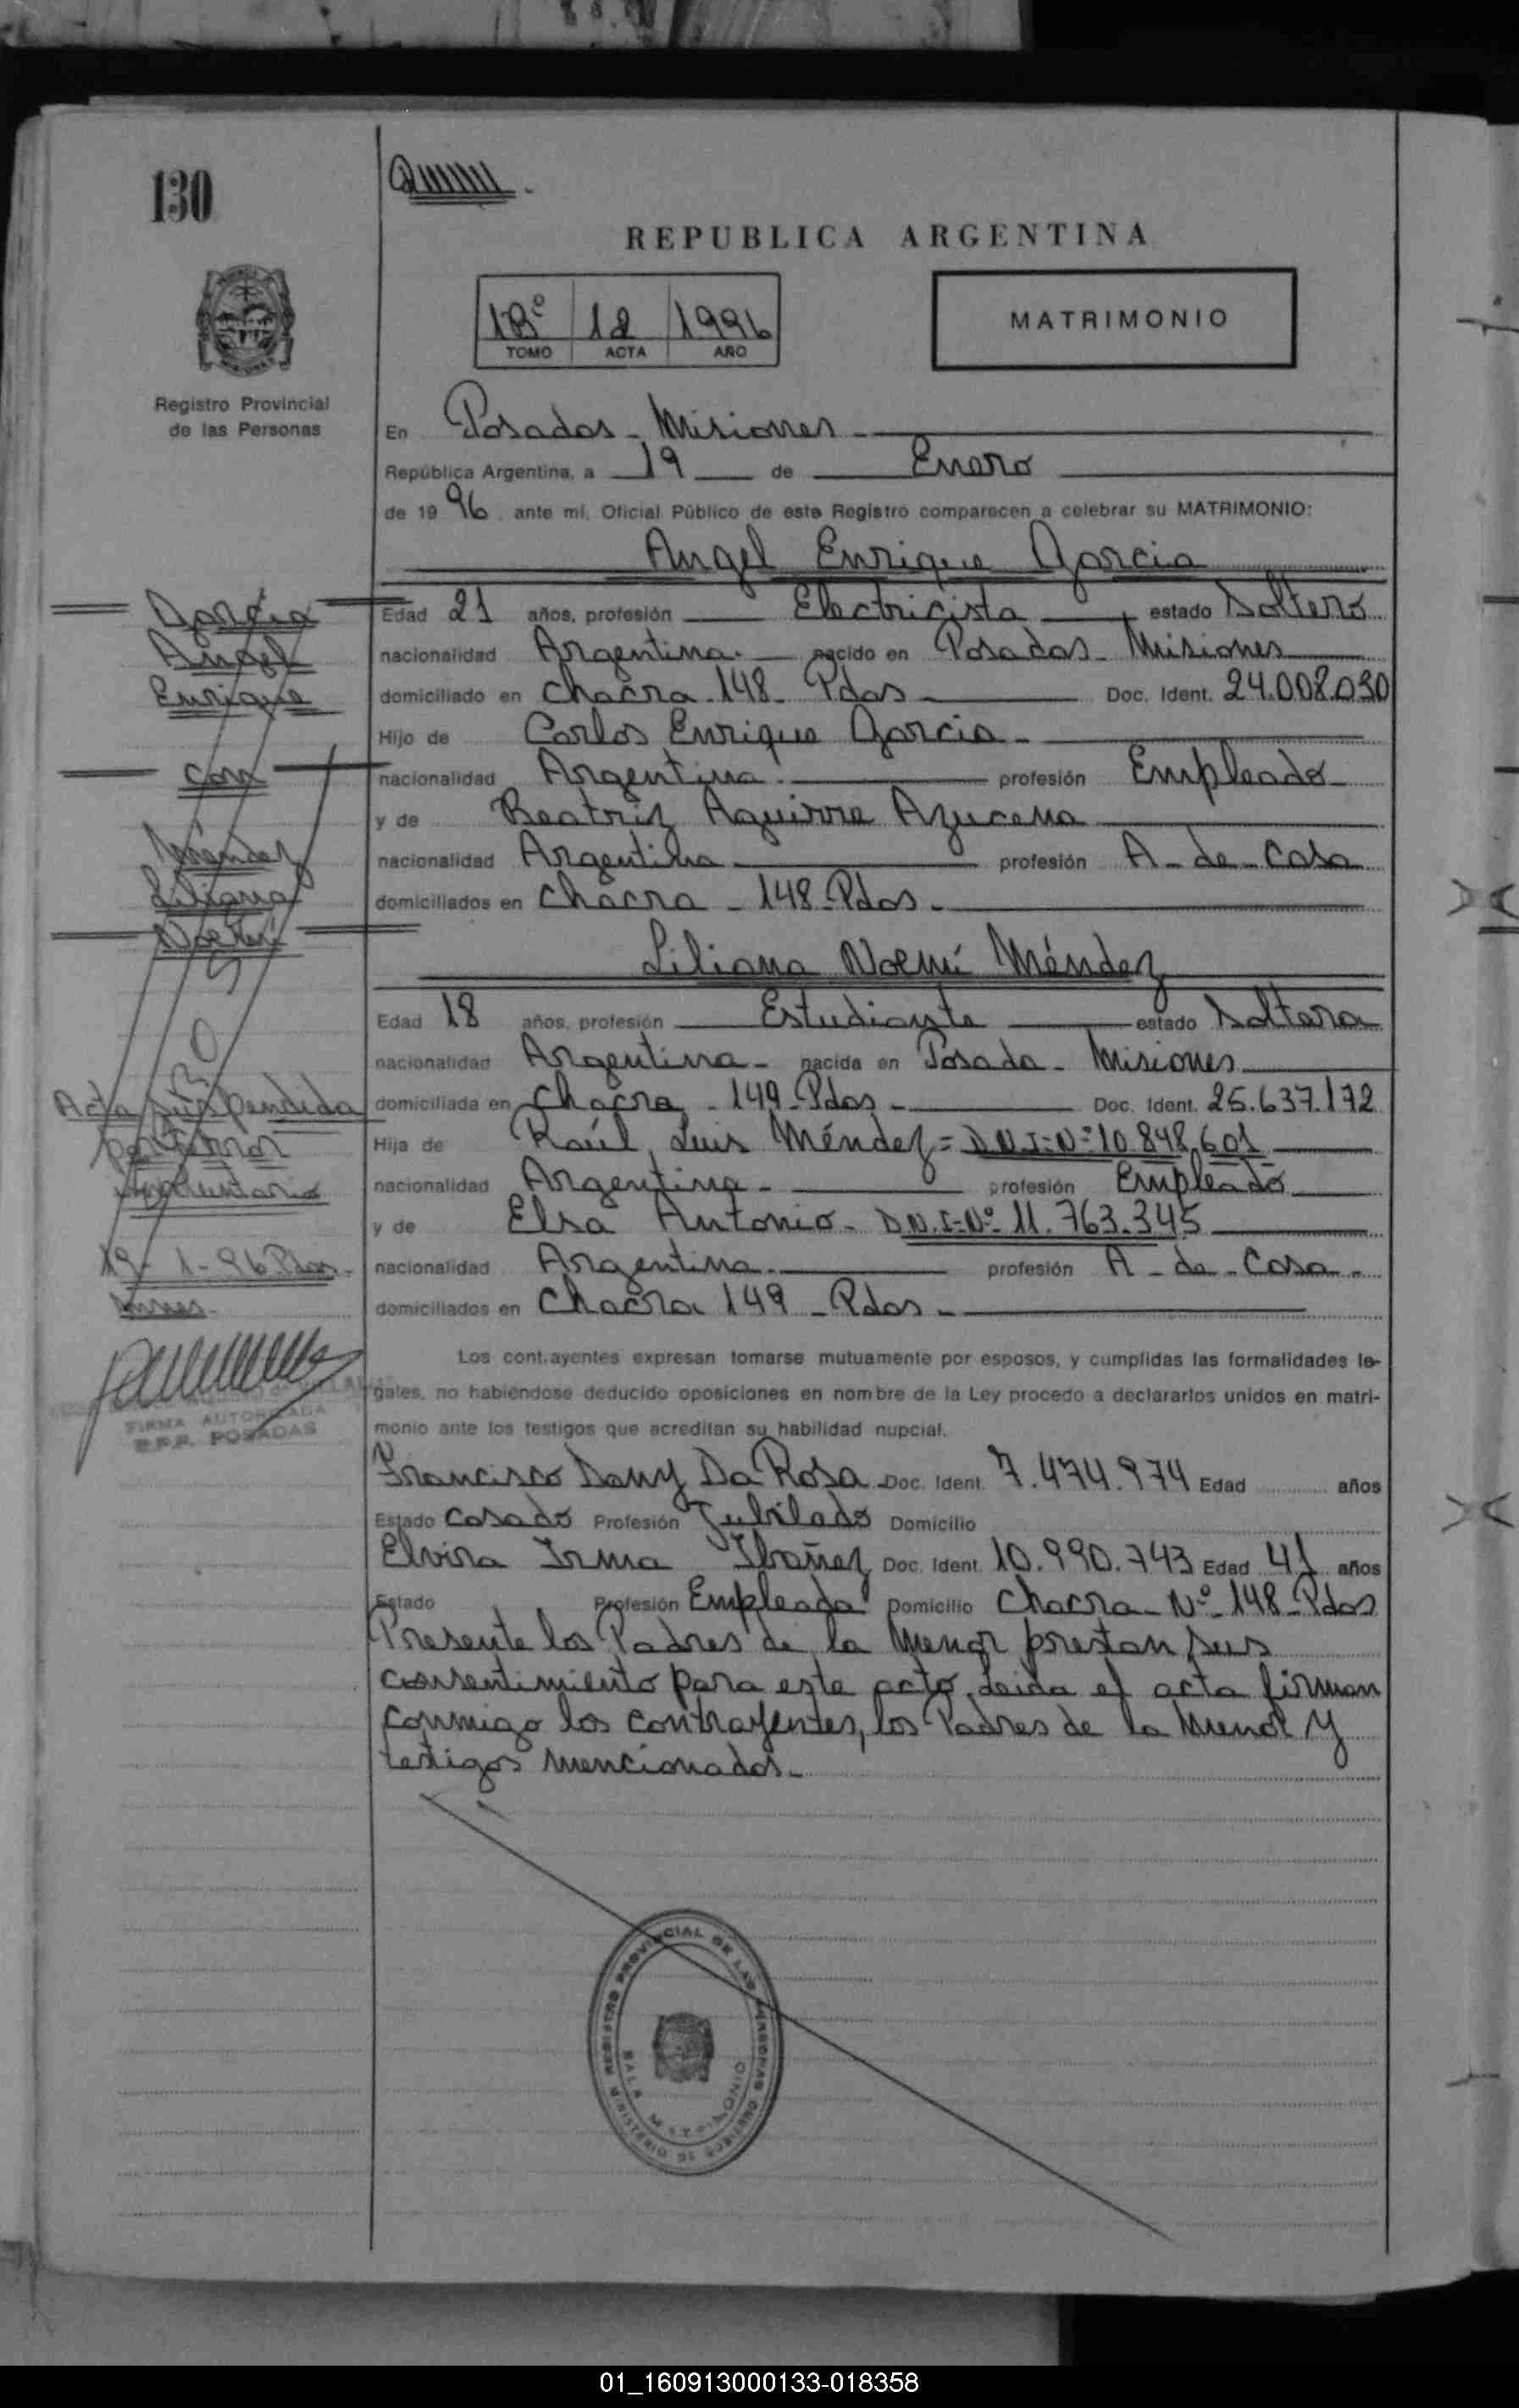 130
REPUBLICA ARGENTINA
18º 12 1996
TOMO ACTA AÑO
MATRIMONIO
Registro Provincial
de las Personas
En Posadas - Misiones -
República Argentina, a 19 de Enero
de 1996 ante mí, Oficial Público de este Registro comparecen a celebrar su MATRIMONIO:
Angel Enrique Garcia
Edad 21 años, profesión Electricista estado Soltero
nacionalidad Argentina. nacido en Posadas - Misiones
domiciliado en Chacra 148 - Pdas Doc. Ident. 24.008.030
Hijo de Carlos Enrique Garcia -
nacionalidad Argentina. profesión Empleado
y de Beatriz Aguirre Azucena
nacionalidad Argentina profesión A - de - Casa
domiciliados en Chacra - 148 - Pdas -
Liliana Noemí Méndez
Edad 18 años, profesión Estudiante estado Soltera
nacionalidad Argentina - nacida en Posada - Misiones
domiciliada en Chacra - 149 - Pdas - Doc. Ident. 25.637.172
Hija de Raúl Luis Méndez = D.N.I = Nº 10.848.601
nacionalidad Argentina - profesión Empleado
y de Elsa Antonio - D.N.I = Nº 11.763.345
nacionalidad Argentina. profesión A - de - Casa -
domiciliados en Chacra 149 - Pdas -
Los cont.ayentes expresan tomarse mutuamente por esposos, y cumplidas las formalidades le-
gales, no habiéndose deducido oposiciones en nombre de la Ley procedo a declararlos unidos en matri-
monio ante los testigos que acreditan su habilidad nupcial.
Francisco Dany Da Rosa Doc. Ident. 7.474.974 Edad años
Estado Casado Profesión Jubilado Domicilio
Elvira Irma Ibañez Doc. Ident. 10.990.743 Edad 41 años
Estado Profesión Empleada Domicilio Chacra - Nº 148 - Pdas
Presente los Padres de la Menor prestan sus
consentimiento para este acto. Leida el acta firman
conmigo los contrayentes, los Padres de la Menor y
testigos mencionados -
Garcia
Angel
Enrique
con
Méndez
Liliana
Noemí
Acta suspendida
por error
involuntario
19 - 1 - 96 Pdas -
Mnes -
FIRMA AUTORIZADA
R.P.P. POSADAS
REGISTRO PROVINCIAL DE LAS PERSONAS
SALA MATRIMONIO
01_160913000133-018358